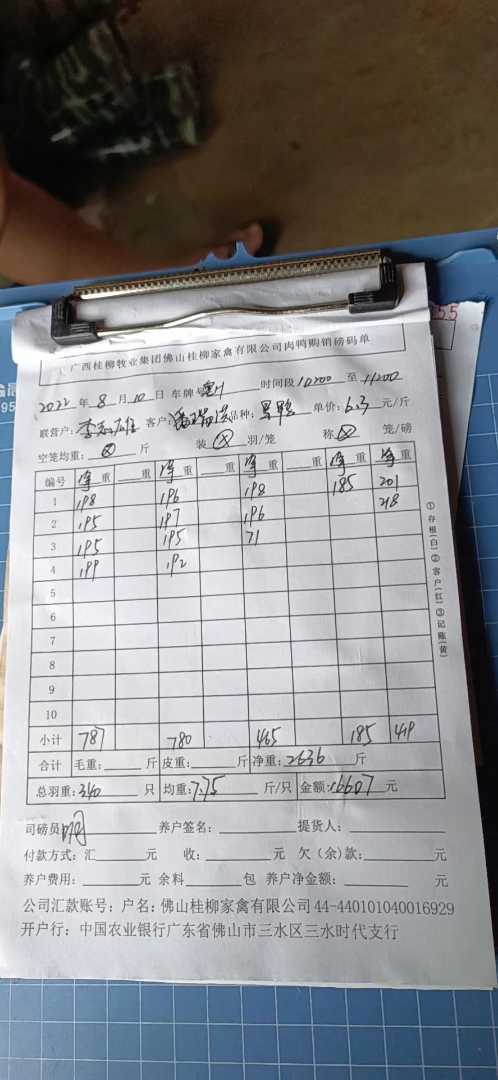 广西桂柳牧业集团佛山桂柳家禽有限公司肉鸭购销磅码单
2022 年 8 月 10 日 车牌号 时间段 10200 至 11200
联营户: 李 客户: 品种: 黑鸭 单价: 6.3 元/斤
空笼均重: 斤 装 羽/笼 称 笼/磅
编号 净重 重 净重 重 净重 重 净重 净重
1 198 196 198 185 201
2 195 197 196 218
3 195 195 71
4 199 192
5
6
7
8
9
10
小计 787 780 465 185 419
合计 毛重: 斤 皮重: 斤 净重: 2636 斤
总羽重: 340 只 均重: 7.75 斤/只 金额: 16607 元
司磅员: 养户签名: 提货人:
付款方式: 汇 元 收: 元 欠(余)款: 元
养户费用: 元 余料 包 养户净金额: 元
公司汇款账号: 户名: 佛山桂柳家禽有限公司 44-440101040016929
开户行: 中国农业银行广东省佛山市三水区三水时代支行
①存根(白)②客户(红)③记账(黄)
5.5
95